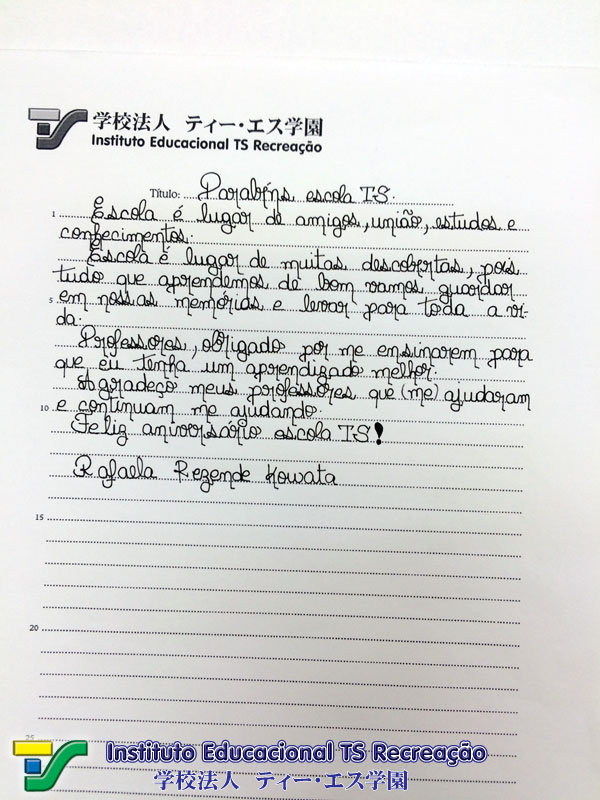 学校法人 ティー・エス学園
Instituto Educacional TS Recreação
Título: Parabéns escola TS.
1 Escola é lugar de amigos, união, estudos e
conhecimentos.
Escola é lugar de muitas descobertas, pois
tudo que aprendemos de bom vamos guardar
5 em nossas memórias e levar para toda a vi-
da.
Professores, obrigado por me ensinarem para
que eu tenha um aprendizado melhor.
Agradeço meus professores que (me) ajudaram
10 e continuam me ajudando.
Feliz aniversário escola TS!
Rafaela Rezende Kowata
15
20
25
Instituto Educacional TS Recreação
学校法人 ティー・エス学園